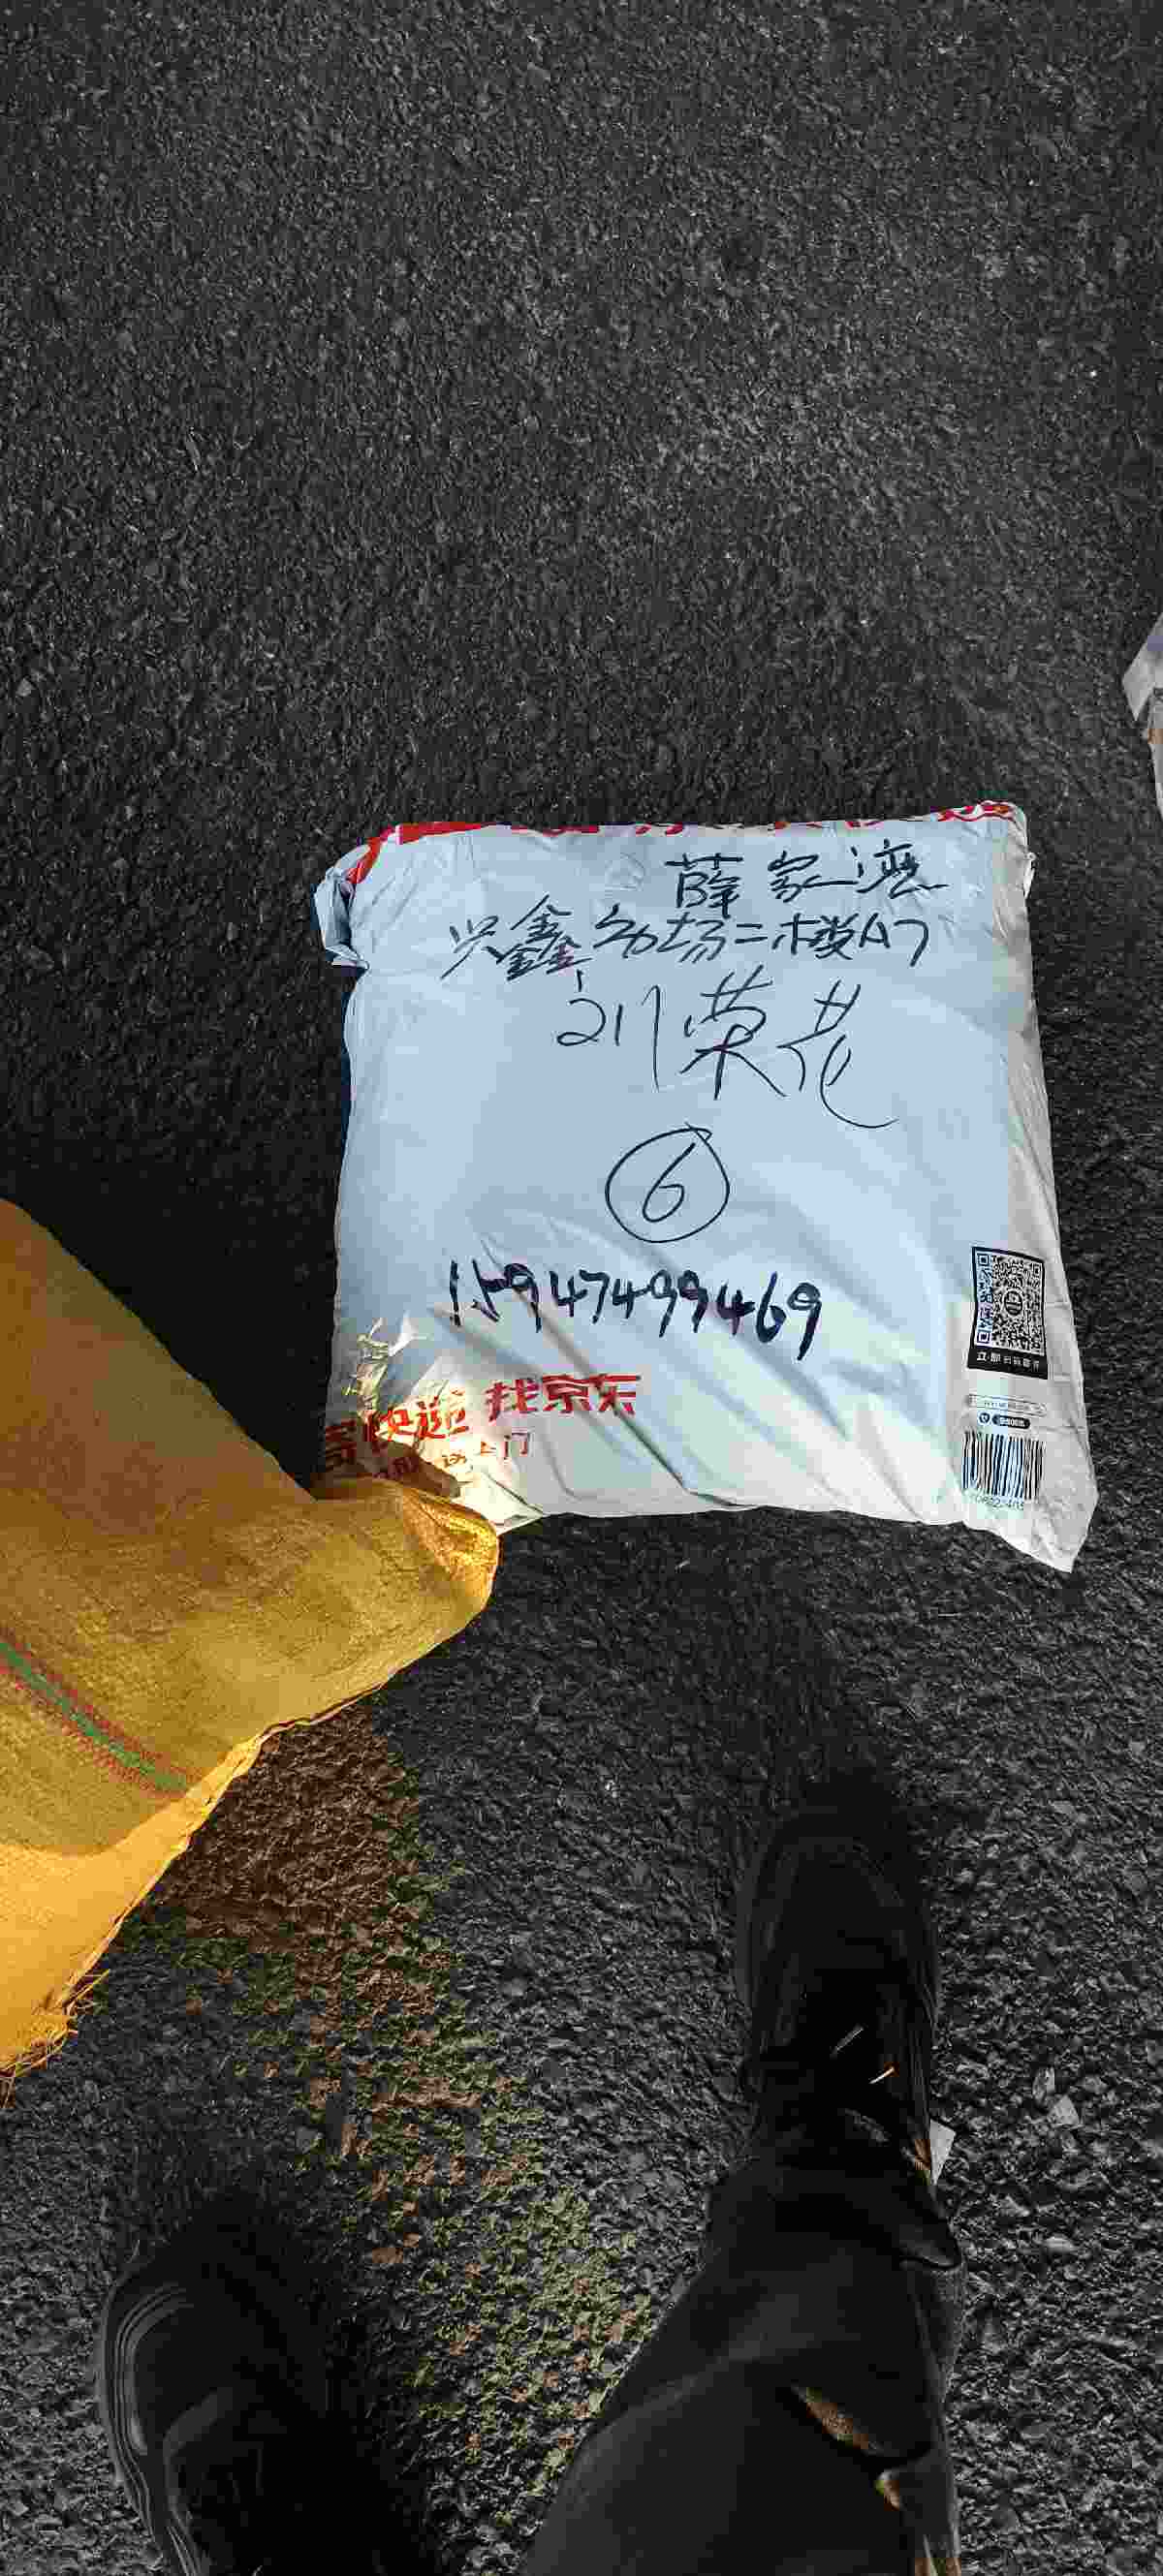 薛家湾
兴鑫农场二楼A7
刘荣花
⑥
15947499469
寄快递 找京东
上门